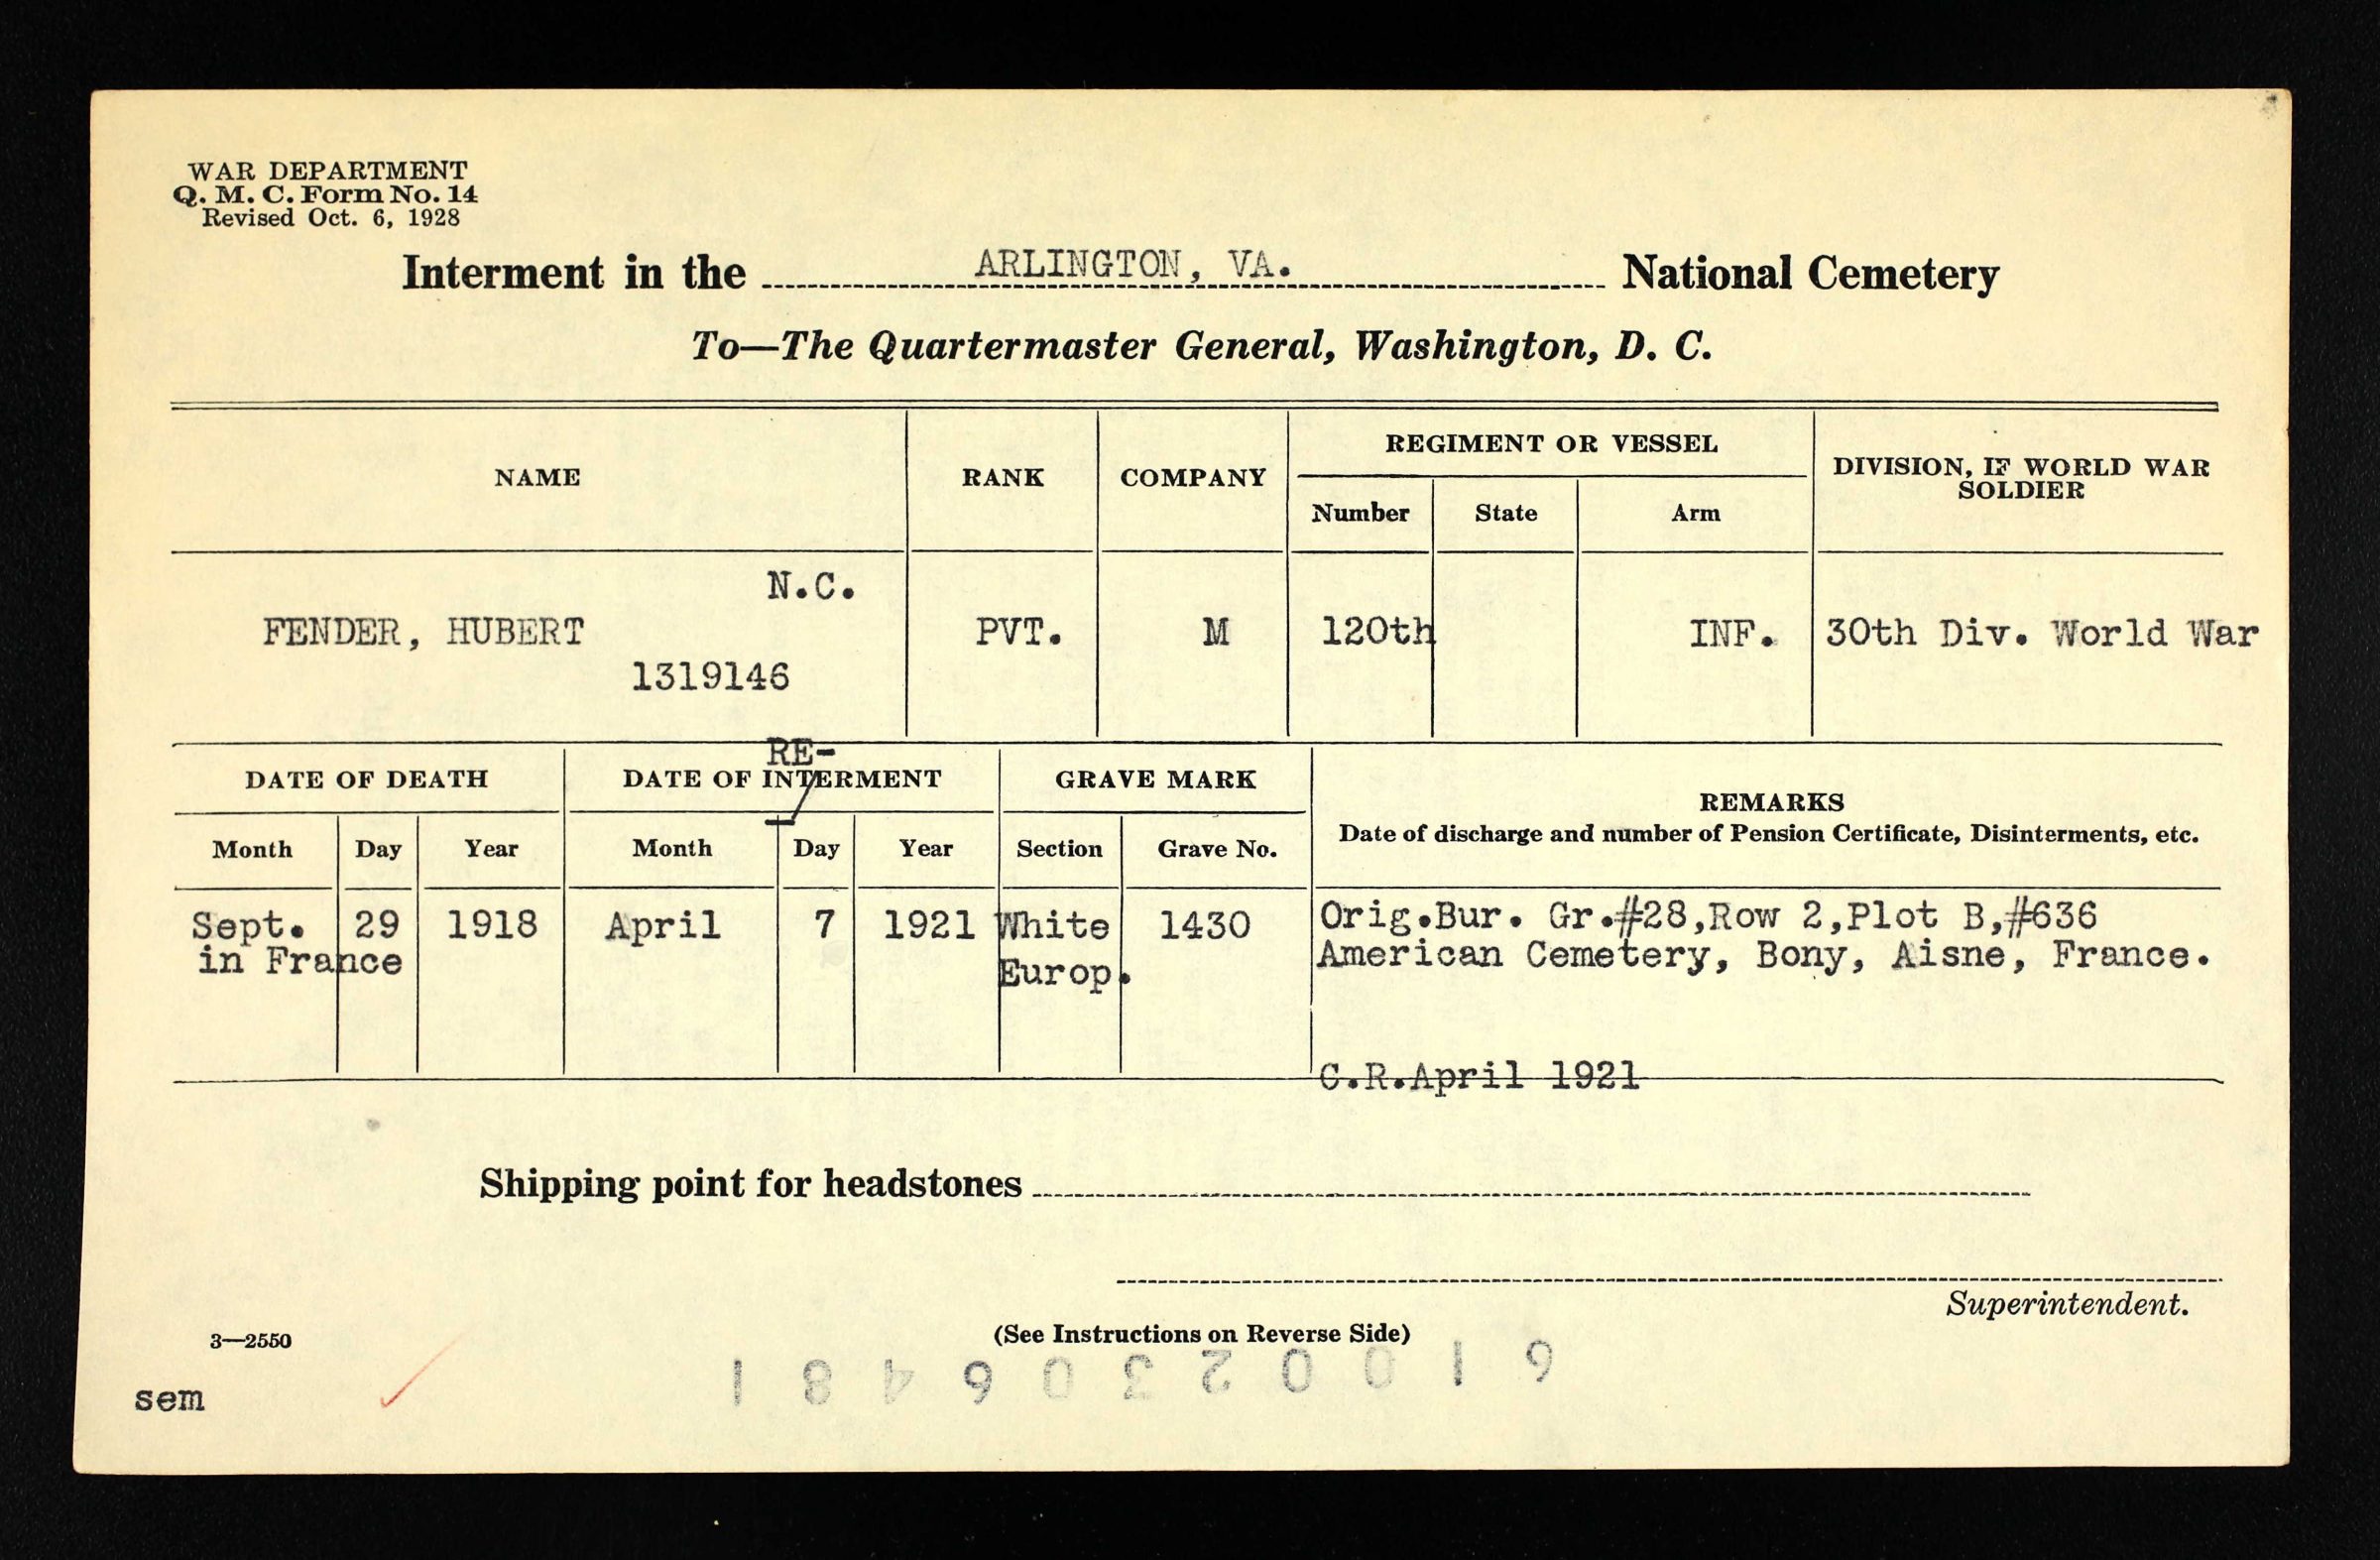 WAR DEPARTMENT
Q. M. C. Form No. 14
Revised Oct. 6, 1928
Interment in the ARLINGTON, VA. National Cemetery
To—The Quartermaster General, Washington, D. C.
NAME
RANK
COMPANY
REGIMENT OR VESSEL
Number
State
Arm
DIVISION, IF WORLD WAR
SOLDIER
N.C.
FENDER, HUBERT
1319146
PVT.
M
120th
INF.
30th Div. World War
DATE OF DEATH
RE-
DATE OF INTERMENT
GRAVE MARK
REMARKS
Date of discharge and number of Pension Certificate, Disinterments, etc.
Month Day Year
Month Day Year
Section Grave No.
Sept. 29 1918
in France
April 7 1921
White
Europ.
1430
Orig.Bur. Gr.#28,Row 2,Plot B,#636
American Cemetery, Bony, Aisne, France.
C.R.April 1921
Shipping point for headstones
Superintendent.
(See Instructions on Reverse Side)
3—2550
sem